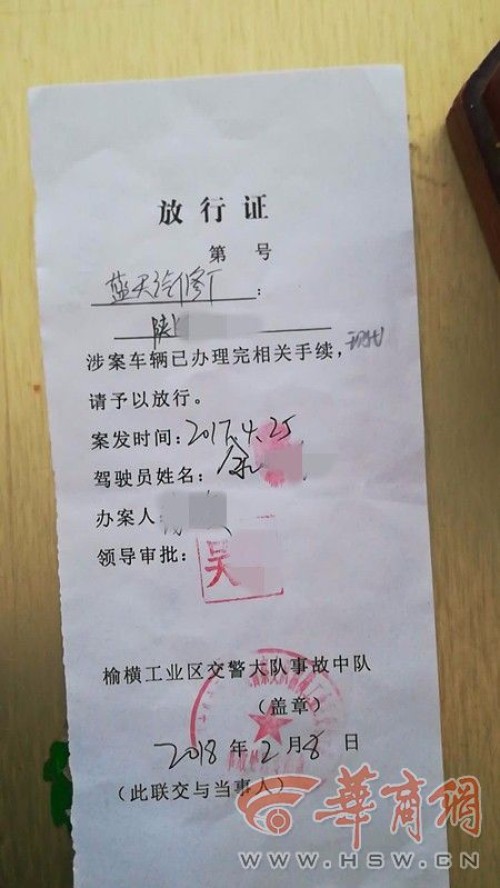 放行证
第 号
蓝天汽修厂:
陕
涉案车辆已办理完相关手续,现代
请予以放行。
案发时间:2017.4.25
驾驶员姓名:余
办案人:
领导审批:吴
榆横工业区交警大队事故中队
(盖章)
2018年2月8日
(此联交与当事人)
華商網
WWW.HSW.CN